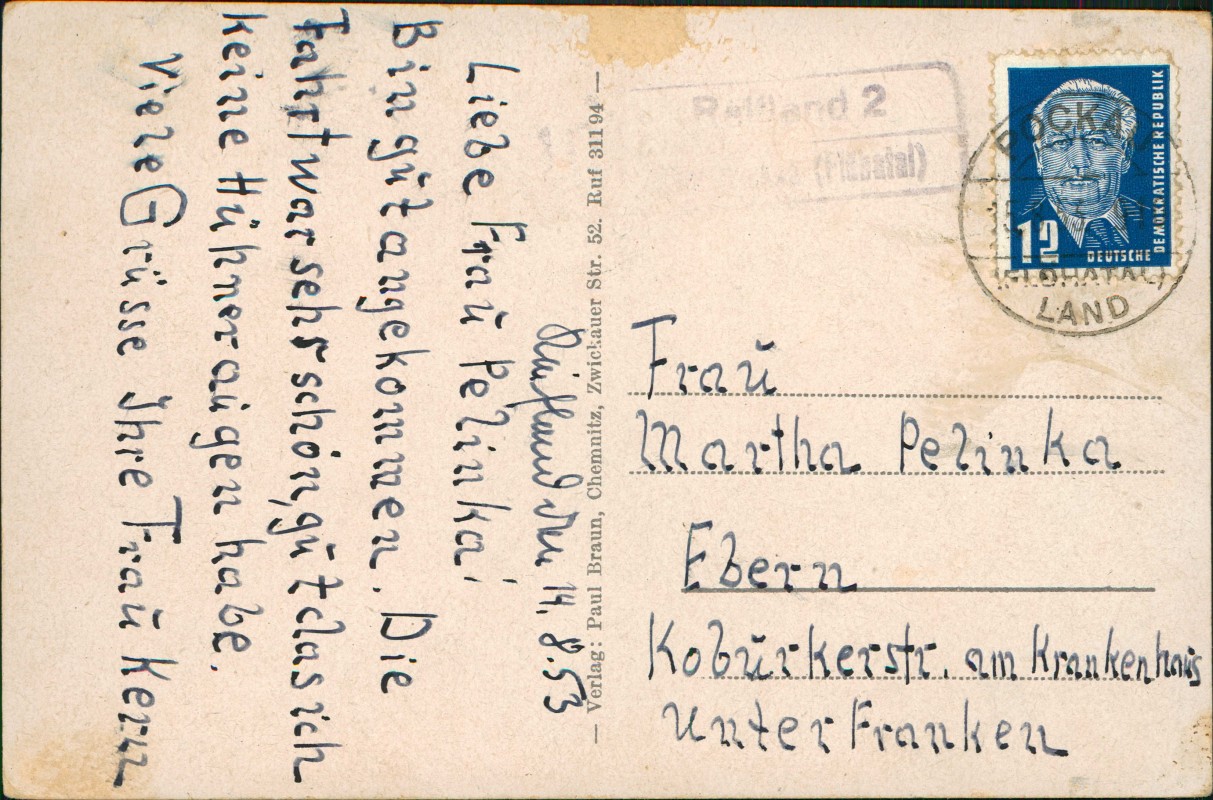 Reifland den 14. 8. 53
Liebe Frau Pelinka!
Bin gūt angekommen. Die
Fahrt war sehr schön, gūt das ich
keine Hühneraūgen habe.
Viele Grüsse Ihre Fraū Kern
— Verlag: Paul Braun, Chemnitz, Zwickauer Str. 52. Ruf 31194 —
Reifland 2
(Flöhatal)
12
DEUTSCHE
DEMOKRATISCHE REPUBLIK
POCKAU
(FLÖHATAL)
LAND
Fraū
Martha Pelinka
Ebern
Kobūrkerstr. am Krankenhaūs
Unter Franken